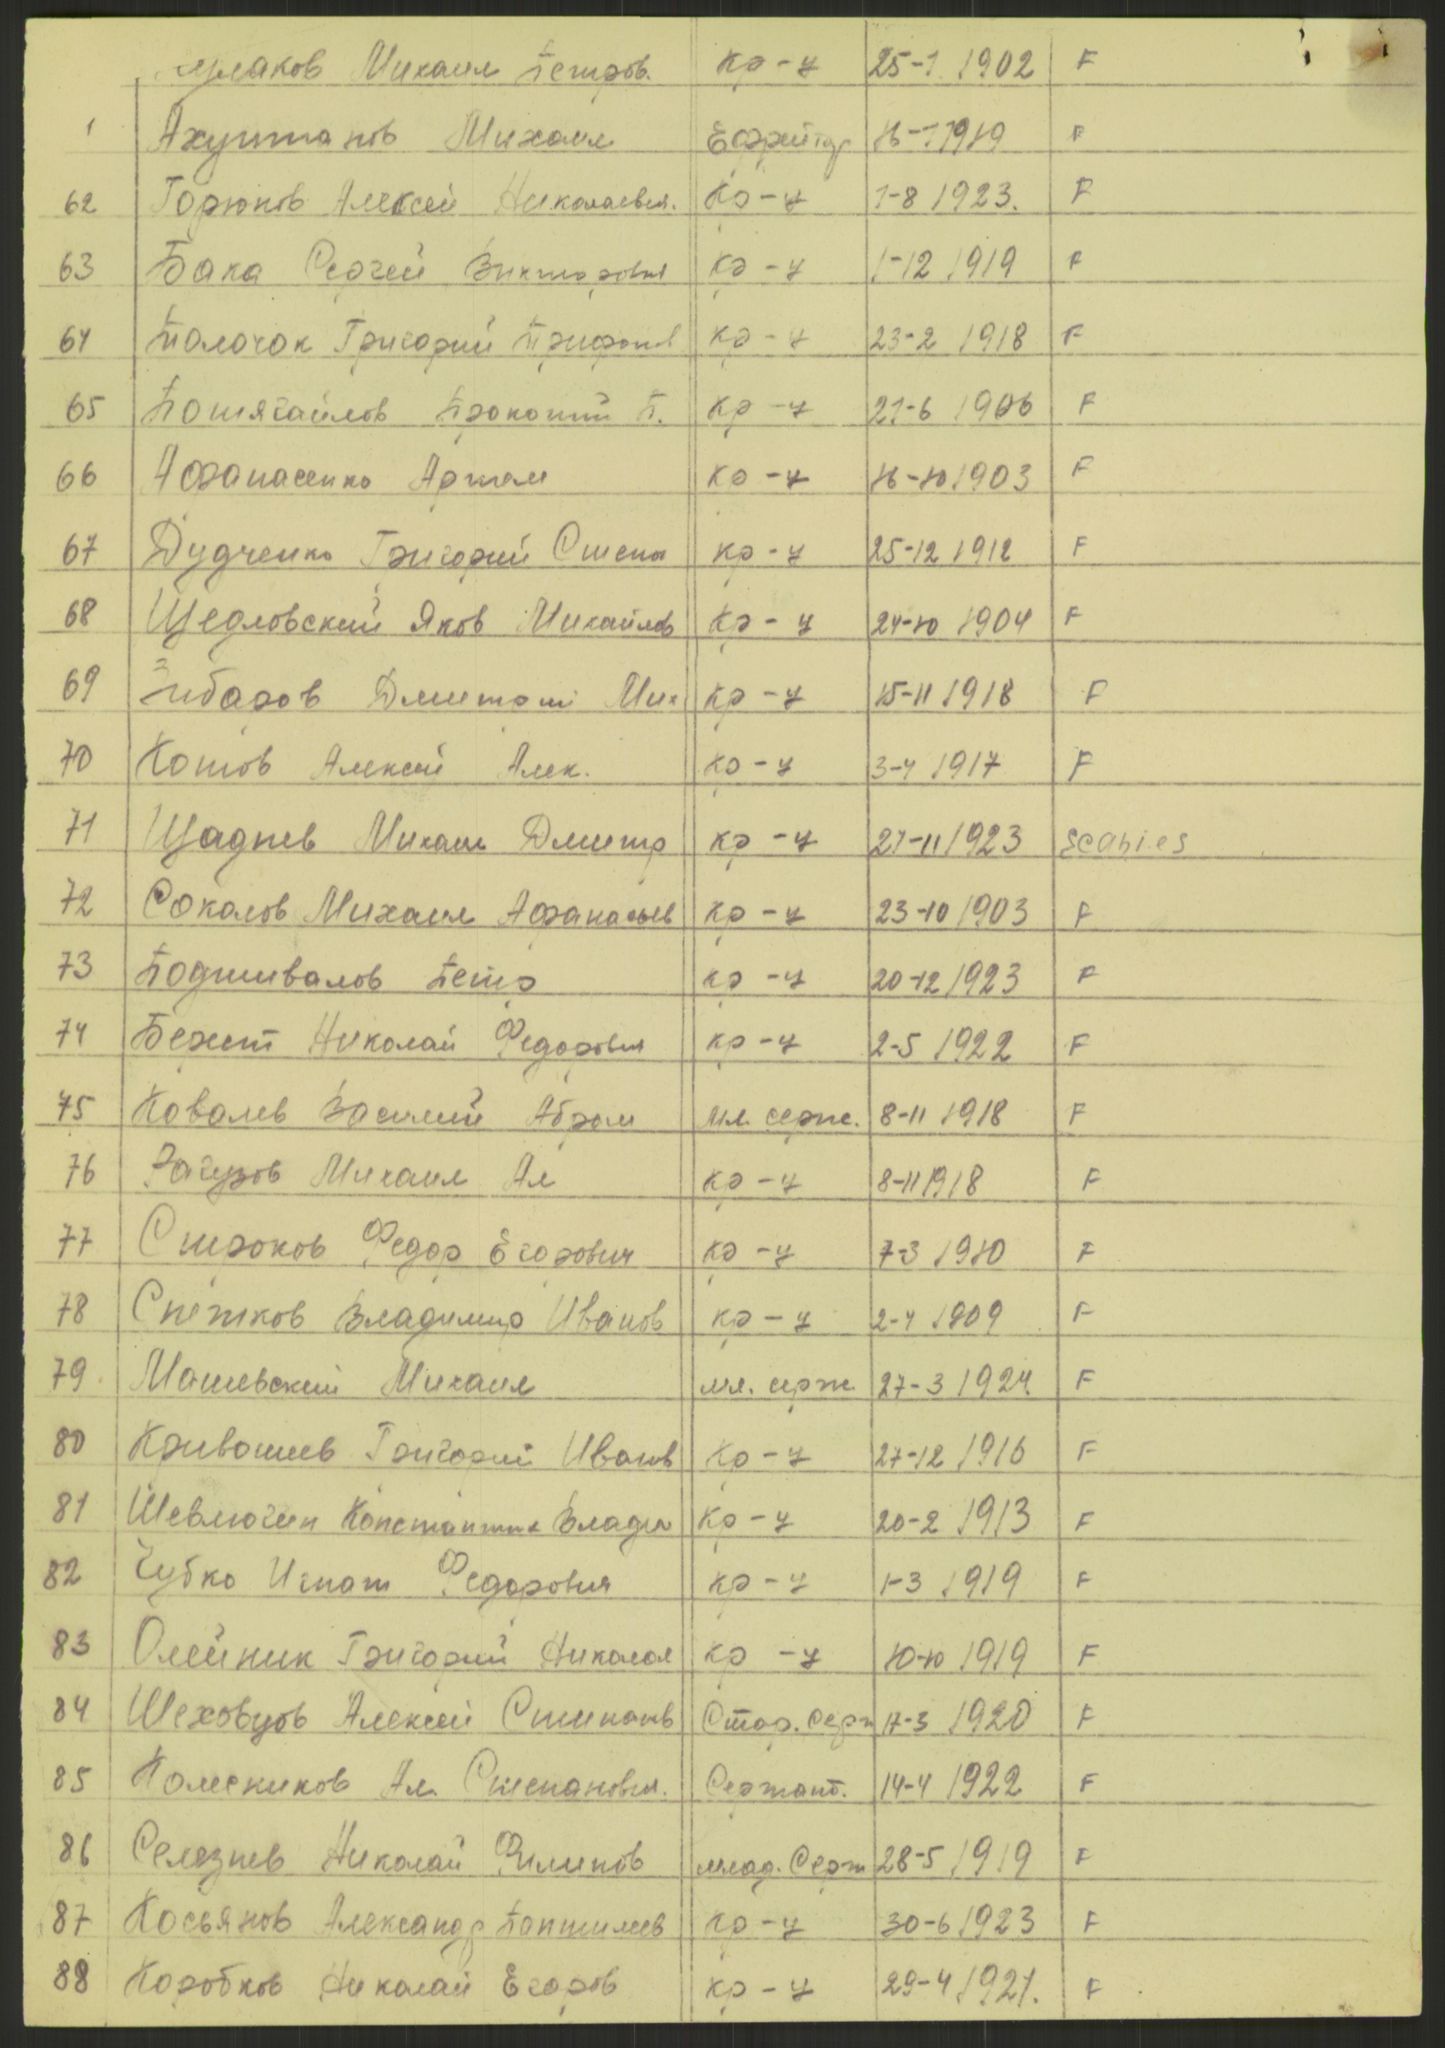 Михаил Петров. кр-ц 25-1 1902 F
1 Ахуттанов Михаил Ефрейтор 16-1 1919 F
62 Горюнов Алексей Николаевич. кр-ц 1-8 1923. F
63 Бака Сергей Викторович кр-ц 1-12 1919 F
64 Палочок Григорий кр-ц 23-2 1918 F
65 Потягайлов Прокопий П. кр-ц 21-6 1906 F
66 Афанасенко Артем кр-ц 16-10 1903 F
67 Дудченко Григорий Степа кр-ц 25-12 1912 F
68 Щедловский Яков Михайлов кр-ц 24-10 1904 F
69 Дмитрий Мих кр-ц 15-11 1918 F
70 Котов Алексей Алек. кр-ц 3-4 1917 F
71 Щаднев Михаил Дмитр кр-ц 27-11 1923 Scabies
72 Соколов Михаил Афанасьев кр-ц 23-10 1903 F
73 Подшивалов Петр кр-ц 20-12 1923 F
74 Берест Николай Федорович кр-ц 2-5 1922 F
75 Ковалев Василий Абрам мл. серж. 8-11 1918 F
76 Михаил Ал кр-ц 8-11 1918 F
77 Строков Федор Егорович кр-ц 7-3 1910 F
78 Снетков Владимир Иванов кр-ц 2-4 1909 F
79 Машевский Михаил мл. серж. 27-3 1924 F
80 Кривошеев Григорий Иванов кр-ц 27-12 1916 F
81 Шевлюгин Константин Влади кр-ц 20-2 1913 F
82 Чубко Игнат Федорович кр-ц 1-3 1919 F
83 Олейник Григорий Николая кр-ц 10-10 1919 F
84 Шеховцов Алексей Степанов Стар. Серж 17-3 1920 F
85 Колесников Ал. Степанович. Сержант. 14-4 1922 F
86 Селезнев Николай Филипов млад. Серж 28-5 1919 F
87 Косьянов Александр кр-ц 30-6 1923 F
88 Коробков Николай Егоров кр-ц 29-4 1921. F